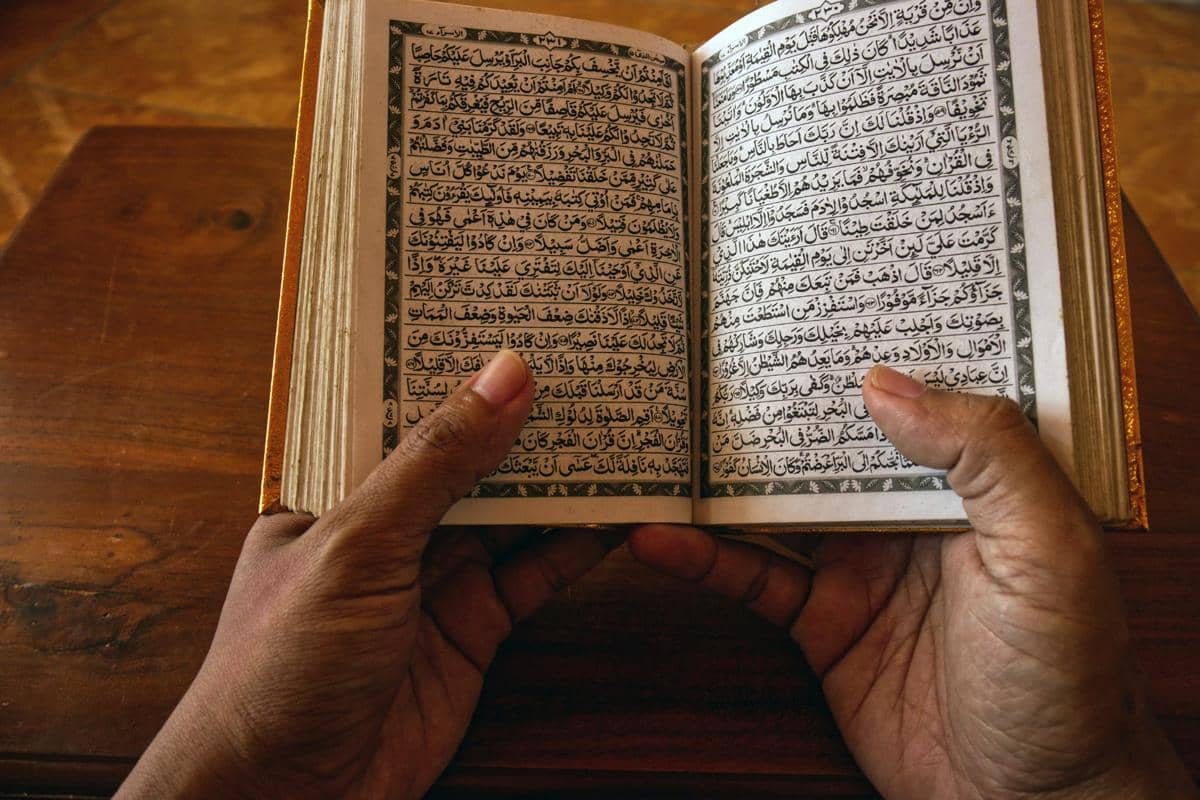 ٢٣٠
وَاِنْ مِّنْ قَرْيَةٍ اِلَّا نَحْنُ مُهْلِكُوْهَا قَبْلَ يَوْمِ الْقِيٰمَةِ اَوْ مُعَذِّبُوْهَا
عَذَابًا شَدِيْدًا كَانَ ذٰلِكَ فِى الْكِتٰبِ مَسْطُوْرًا
اَنْ نُّرْسِلَ بِالْاٰيٰتِ اِلَّا اَنْ كَذَّبَ بِهَا الْاَوَّلُوْنَ وَاٰتَيْنَا
ثَمُوْدَ النَّاقَةَ مُبْصِرَةً فَظَلَمُوْا بِهَا وَمَا نُرْسِلُ بِالْاٰيٰتِ اِلَّا
تَخْوِيْفًا وَاِذْ قُلْنَا لَكَ اِنَّ رَبَّكَ اَحَاطَ بِالنَّاسِ وَمَا جَعَلْنَا
الرُّءْيَا الَّتِيْ اَرَيْنٰكَ اِلَّا فِتْنَةً لِّلنَّاسِ وَالشَّجَرَةَ الْمَلْعُوْنَةَ
فِى الْقُرْاٰنِ وَنُخَوِّفُهُمْ فَمَا يَزِيْدُهُمْ اِلَّا طُغْيَانًا كَبِيْرًا
وَاِذْ قُلْنَا لِلْمَلٰئِكَةِ اسْجُدُوْا لِاٰدَمَ فَسَجَدُوْا اِلَّا اِبْلِيْسَ قَالَ
ءَاَسْجُدُ لِمَنْ خَلَقْتَ طِيْنًا قَالَ اَرَءَيْتَكَ هٰذَا الَّذِيْ
كَرَّمْتَ عَلَيَّ لَئِنْ اَخَّرْتَنِ اِلٰى يَوْمِ الْقِيٰمَةِ لَاَحْتَنِكَنَّ ذُرِّيَّتَهٗ
اِلَّا قَلِيْلًا قَالَ اذْهَبْ فَمَنْ تَبِعَكَ مِنْهُمْ فَاِنَّ جَهَنَّمَ
جَزَاؤُكُمْ جَزَاءً مَّوْفُوْرًا وَاسْتَفْزِزْ مَنِ اسْتَطَعْتَ مِنْهُمْ
بِصَوْتِكَ وَاَجْلِبْ عَلَيْهِمْ بِخَيْلِكَ وَرَجِلِكَ وَشَارِكْهُمْ فِى
الْاَمْوَالِ وَالْاَوْلَادِ وَعِدْهُمْ وَمَا يَعِدُهُمُ الشَّيْطٰنُ اِلَّا غُرُوْرًا
اِنَّ عِبَادِيْ لَيْسَ سُلْطٰنٌ وَكَفٰى بِرَبِّكَ وَكِيْلًا رَبُّكُمُ
فِى الْبَحْرِ لِتَبْتَغُوْا مِنْ فَضْلِهٖ اِنَّهٗ
مَسَّكُمُ الضُّرُّ فِى الْبَحْرِ ضَلَّ مَنْ
نَجّٰىكُمْ اِلَى الْبَرِّ اَعْرَضْتُمْ وَكَانَ الْاِنْسَانُ كَفُوْرًا
٢٣١
اَفَاَمِنْتُمْ اَنْ يَّخْسِفَ بِكُمْ جَانِبَ الْبَرِّ اَوْ يُرْسِلَ عَلَيْكُمْ حَاصِبًا
ثُمَّ لَا تَجِدُوْا لَكُمْ وَكِيْلًا اَمْ اَمِنْتُمْ اَنْ يُّعِيْدَكُمْ فِيْهِ تَارَةً
اُخْرٰى فَيُرْسِلَ عَلَيْكُمْ قَاصِفًا مِّنَ الرِّيْحِ فَيُغْرِقَكُمْ بِمَا كَفَرْتُمْ
ثُمَّ لَا تَجِدُوْا لَكُمْ عَلَيْنَا بِهٖ تَبِيْعًا وَلَقَدْ كَرَّمْنَا بَنِيْ اٰدَمَ وَ
حَمَلْنٰهُمْ فِى الْبَرِّ وَالْبَحْرِ وَرَزَقْنٰهُمْ مِّنَ الطَّيِّبٰتِ وَفَضَّلْنٰهُمْ
عَلٰى كَثِيْرٍ مِّمَّنْ خَلَقْنَا تَفْضِيْلًا يَوْمَ نَدْعُوْا كُلَّ اُنَاسٍ
بِاِمَامِهِمْ فَمَنْ اُوْتِيَ كِتٰبَهٗ بِيَمِيْنِهٖ فَاُولٰئِكَ يَقْرَءُوْنَ كِتٰبَهُمْ
وَلَا يُظْلَمُوْنَ فَتِيْلًا وَمَنْ كَانَ فِيْ هٰذِهٖ اَعْمٰى فَهُوَ فِى
الْاٰخِرَةِ اَعْمٰى وَاَضَلُّ سَبِيْلًا وَاِنْ كَادُوْا لَيَفْتِنُوْنَكَ
عَنِ الَّذِيْ اَوْحَيْنَا اِلَيْكَ لِتَفْتَرِيَ عَلَيْنَا غَيْرَهٗ وَاِذًا
لَّاتَّخَذُوْكَ خَلِيْلًا وَلَوْلَا اَنْ ثَبَّتْنٰكَ لَقَدْ كِدْتَّ تَرْكَنُ اِلَيْهِمْ
شَيْئًا قَلِيْلًا اِذًا لَّاَذَقْنٰكَ ضِعْفَ الْحَيٰوةِ وَضِعْفَ الْمَمَاتِ
ثُمَّ لَا تَجِدُ لَكَ عَلَيْنَا نَصِيْرًا وَاِنْ كَادُوْا لَيَسْتَفِزُّوْنَكَ مِنَ
الْاَرْضِ لِيُخْرِجُوْكَ مِنْهَا وَاِذًا لَّا اِلَّا قَلِيْلًا
سُنَّةَ مَنْ قَدْ اَرْسَلْنَا قَبْلَكَ مِنْ لِسُنَّتِنَا
تَحْوِيْلًا اَقِمِ الصَّلٰوةَ لِدُلُوْكِ الشَّمْسِ
وَقُرْاٰنَ الْفَجْرِ اِنَّ قُرْاٰنَ الْفَجْرِ كَانَ
فَتَهَجَّدْ بِهٖ نَافِلَةً لَّكَ عَسٰى اَنْ يَّبْعَثَكَ